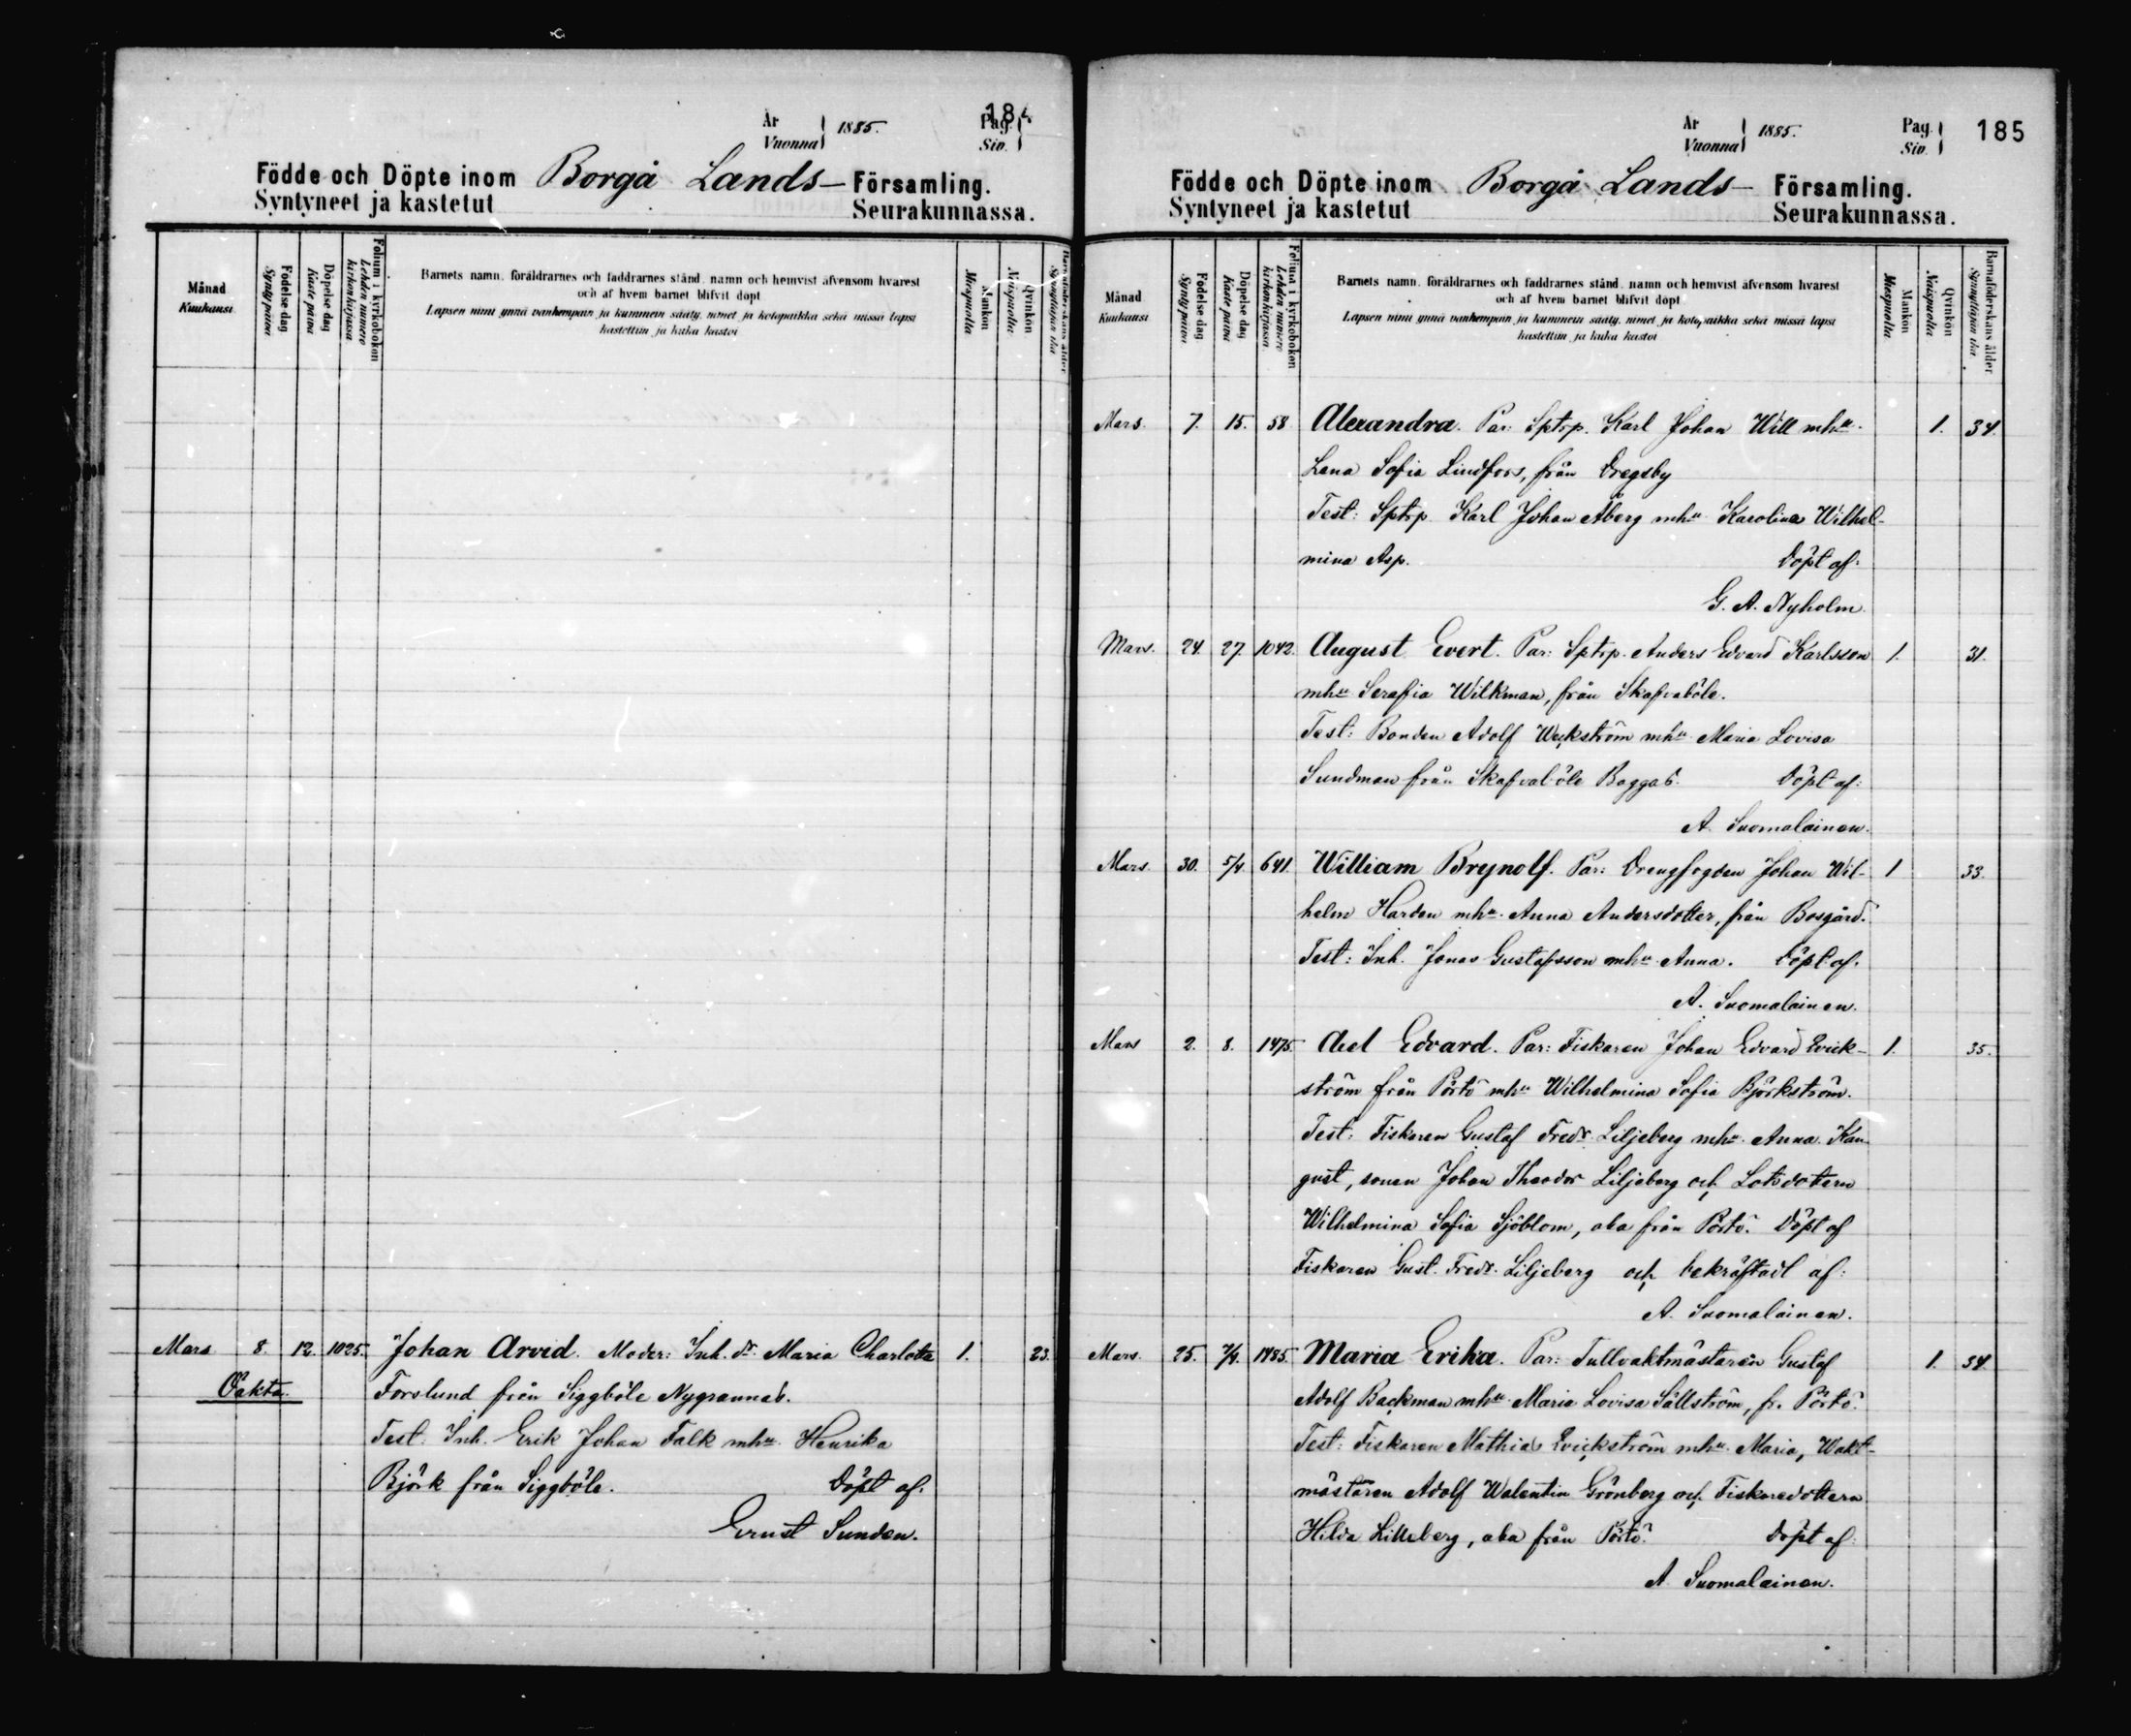 184
År
Vuonna
1885.
Pag.
Siv.
Födde och Döpte inom Borgå Lands- Församling.
Syntyneet ja kastetut Seurakunnassa.
Månad
Kuukausi
Födelse dag
Syntypäivä
Döpelse dag
Kaste päivä
Folium i kyrkoboken
Lehden numero kirkonkirjassa
Barnets namn, föräldrarnes och faddrarnes stånd, namn och hemvist äfvensom hvarest
och af hvem barnet blifvit döpt
Lapsen nimi ynnä vanhempain ja kummein sääty, nimet ja kotopaikka sekä missä lapsi
kastettiin ja kuka kastoi
Mankön
Miespuolta
Qvinkön
Naispuolta
Barnaföderskans ålder
Synnyttäjän ikä
Mars 8. 12. 1025. Johan Arvid. Moder: Inh. dr. Maria Charlotta 1. 23.
Oäkta. Forslund från Siggböle Nygrannas.
Test. Inh. Erik Johan Falk mhu. Henrika
Björk från Siggböle. Döpt af.
Ernst Sunden.
År
Vuonna
1885.
Pag.
Siv.
185
Födde och Döpte inom Borgå Lands- Församling.
Syntyneet ja kastetut Seurakunnassa.
Månad
Kuukausi
Födelse dag
Syntypäivä
Döpelse dag
Kaste päivä
Folium i kyrkoboken
Lehden numero kirkonkirjassa
Barnets namn, föräldrarnes och faddrarnes stånd, namn och hemvist äfvensom hvarest
och af hvem barnet blifvit döpt
Lapsen nimi ynnä vanhempain ja kummein sääty, nimet ja kotopaikka sekä missä lapsi
kastettiin ja kuka kastoi
Mankön
Miespuolta
Qvinkön
Naispuolta
Barnaföderskans ålder
Synnyttäjän ikä
Mars. 7. 15. 58 Alexandra. Par: Sptrp. Karl Johan Will mhu. 1. 34.
Lena Sofia Lindfors, från Dregsby
Test: Sptrp Karl Johan Åberg mhu Karolina Wilhel-
mina Asp. Döpt af:
G. A. Nyholm.
Mars. 24. 27. 1042. August Evert. Par: Sptrp. Anders Edvard Karlsson 1. 31.
mhu Serafia Wilkman, från Skafvaböle.
Test: Bonden Adolf Weckström mhu Maria Lovisa
Sundman från Skafvaböle Baggas. Döpt af:
A. Suomalainen.
Mars. 30. 5/4. 641. William Brynolf. Par: Drengfogden Johan Wil- 1 33.
helm Harden mhu. Anna Andersdotter, från Bosgård.
Test: Inh. Jonas Gustafsson mhu Anna. Döpt af.
A. Suomalainen.
Mars 2. 8. 1475. Axel Edvard. Par: Fiskaren Johan Edvard Evick- 1. 35.
ström från Pörtö mhu Wilhelmina Sofia Björkström.
Test: Fiskaren Gustaf Fredr. Liljeberg mhu. Anna Kan-
gust, sonen Johan Theodor Liljeberg och Lotsdottern
Wilhelmina Sofia Sjöblom, alla från Pörtö. Döpt af
Fiskaren Gust. Fredr. Liljeberg och bekräftadt af:
A. Suomalainen.
Mars. 25. 7/4. 1485. Maria Erika. Par: Tullvaktmästaren Gustaf 1. 34
Adolf Backman mhu Maria Lovisa Sällström, fr. Pörtö.
Test: Fiskaren Mathias Evickström mhu. Maria, Wakt-
mästaren Adolf Walentin Grönberg och Fiskaredottern
Hilda Lilleberg, alla från Pörtö. Döpt af:
A. Suomalainen.